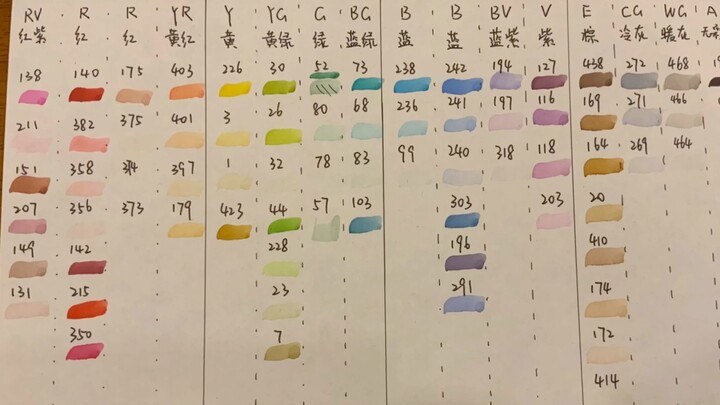 RV R R YR Y YG G BG B B BV V E CG WG A
红紫 红 红 黄红 黄 黄绿 绿 蓝绿 蓝 蓝 蓝紫 紫 棕 冷灰 暖灰
138 140 175 403 226 30 52 73 238 242 194 127 438 272 468
211 382 375 401 3 26 80 68 236 241 197 116 169 271 466
151 358 374 397 1 32 78 83 99 240 318 118 164 269 464
207 356 373 179 423 44 57 103 303 203 20
149 142 228 196 410
131 215 23 291 174
350 7 172
414